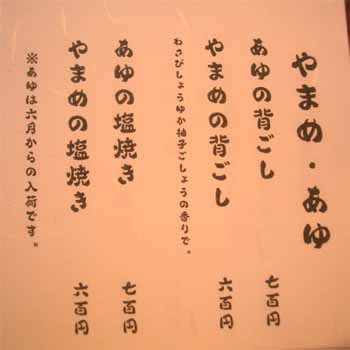 やまめ・あゆ
あゆの背ごし 七百円
やまめの背ごし 六百円
わさびしょうゆか柚子ごしょうの香りで。
あゆの塩焼き 七百円
やまめの塩焼き 六百円
※あゆは六月からの入荷です。